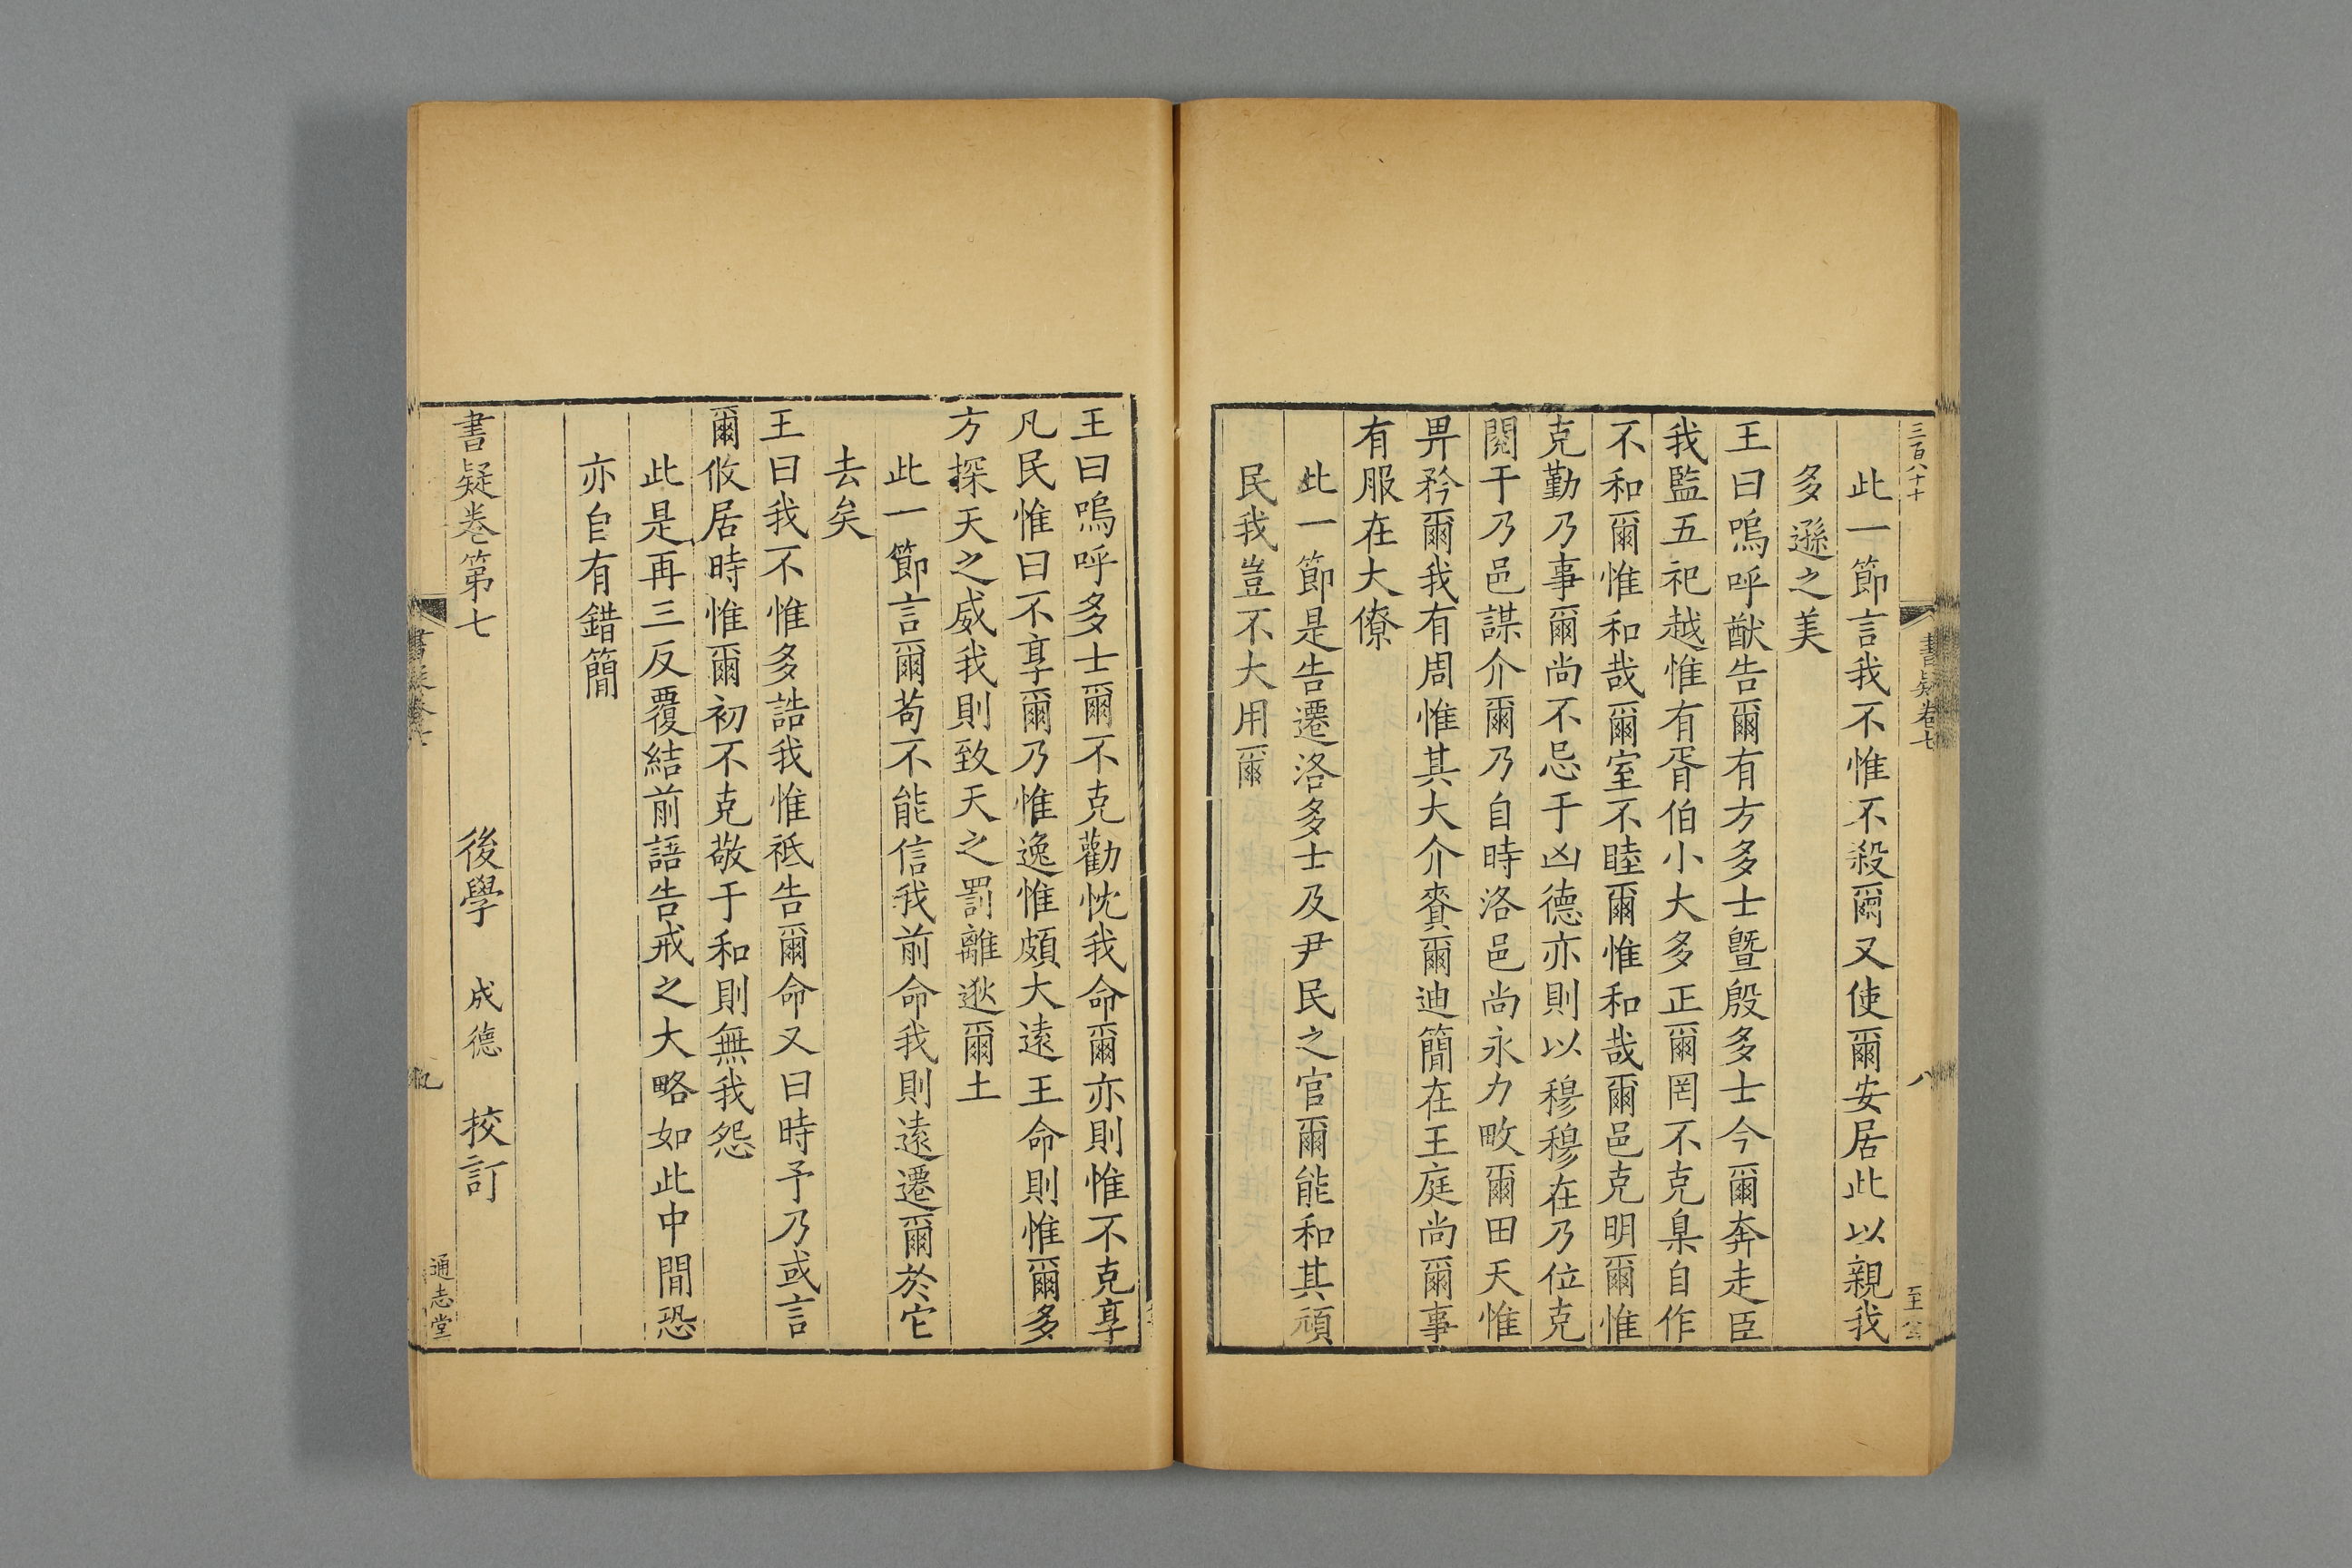 三百八十
書疑卷七
八
此一節言我不惟不殺爾又使爾安居此以親我
多遜之美
王曰嗚呼猷告爾有方多士曁殷多士今爾奔走臣
我監五祀越惟有胥伯小大多正爾罔不克臬自作
不和爾惟和哉爾室不睦爾惟和哉爾邑克明爾惟
克勤乃事爾尚不忌于凶德亦則以穆穆在乃位克
閱于乃邑謀介爾乃自時洛邑尚永力畋爾田天惟
畀矜爾我有周惟其大介賚爾迪簡在王庭尚爾事
有服在大僚
此一節是告遷洛多士及尹民之官爾能和其頑
民我豈不大用爾
王曰嗚呼多士爾不克勸忱我命爾亦則惟不克享
凡民惟曰不享爾乃惟逸惟頗大遠王命則惟爾多
方探天之威我則致天之罰離逖爾土
此一節言爾苟不能信我前命我則遠遷爾於它
去矣
王曰我不惟多誥我惟祗告爾命又曰時予乃或言
爾攸居時惟爾初不克敬于和則無我怨
此是再三反覆結前語告戒之大略如此中間恐
亦自有錯簡
書疑卷第七
後學 成德 挍訂
通志堂